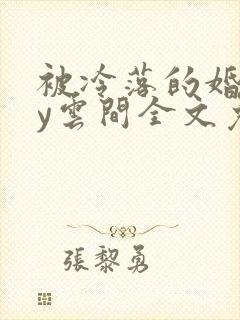 被冷落的婚
y雲間全文免
張黎勇